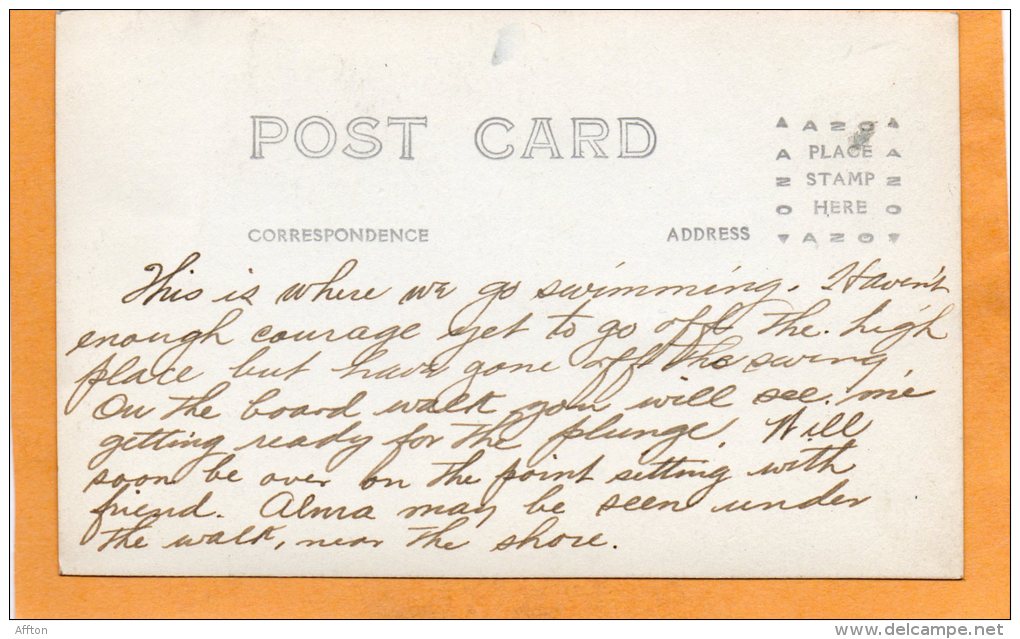 POST CARD
AZO
PLACE
STAMP
HERE
AZO
AZO
AZO
CORRESPONDENCE
ADDRESS
This is where we go swimming. Haven't
enough courage yet to go off the high
place but have gone off the swing
On the board walk you will see me
getting ready for the plunge. Will
soon be over on the point sitting with
friend. Alma may be seen under
the walk, near the shore.
Affton
www.delcampe.net